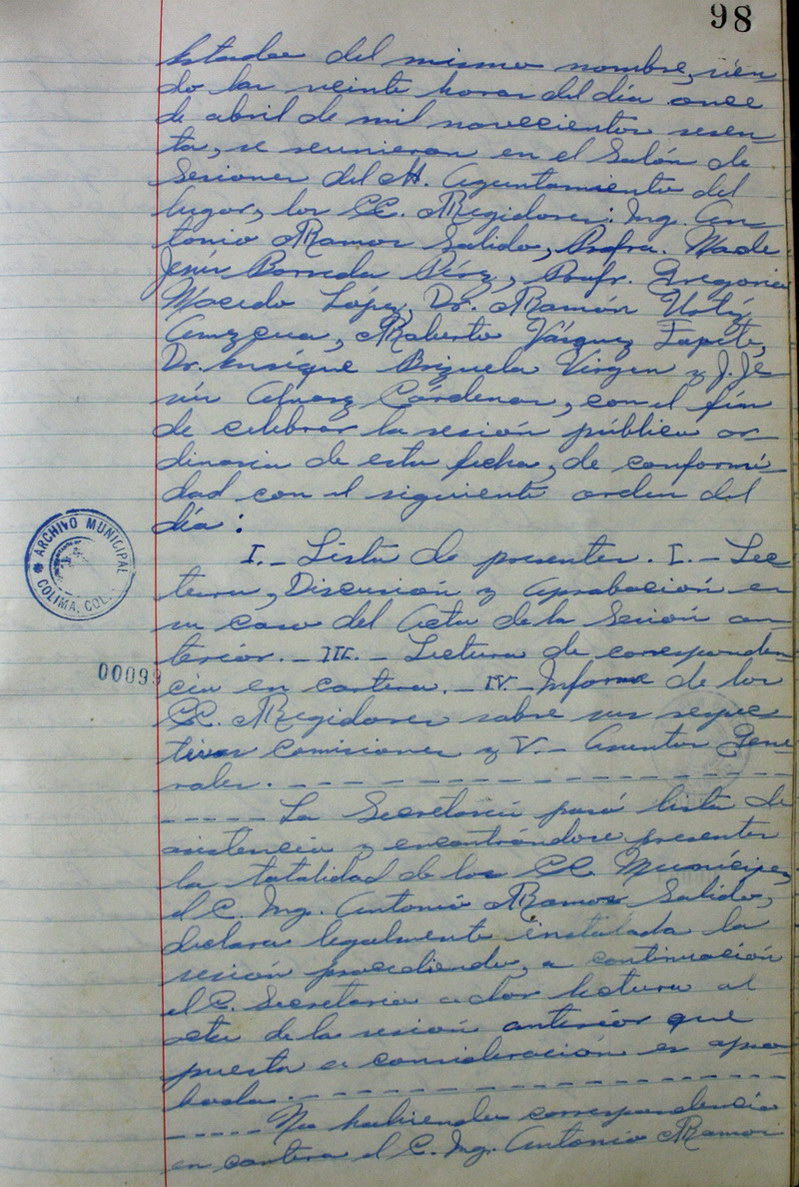 98
Estado del mismo nombre, sien-
do las veinte horas del día once
de abril de mil novecientos sesen-
ta, se reunieron en el Salón de
Sesiones del H. Ayuntamiento del
lugar, los CC. Regidores: Ing. An-
tonio Ramos Salido, Profra. Ma. de
Jesús Parreda Pérez, Profr. Gregorio
Macedo López, Dr. Ramón
Amezcua, Roberto Vásquez Tapete,
Dr. Enrique Brizuela Virgen y J. Je-
sús Cárdenas, con el fin
de celebrar la sesión pública or-
dinaria de esta fecha, de conformi-
dad con el siguiente orden del
día:
I.- Lista de presentes. I.- Lec-
tura, Discusión y Aprobación en
su caso del Acta de la Sesión an-
terior.- III.- Lectura de corresponden-
cia en cartera.- IV.- Informe de los
CC. Regidores sobre sus respec-
tivas comisiones y V.- Asuntos Gene-
rales.- - - - - - - - - - - - - - -
- - - - - La Secretaría pasó lista de
asistencia y encontrándose presentes
la totalidad de los CC. Munícipes,
el C. Ing. Antonio Ramos Salido,
declara legalmente instalada la
sesión procediendo, a continuación
el C. Secretario a dar lectura al
acta de la sesión anterior que
puesta a consideración es apro-
bada.- - - - - - - - - - - - - - -
- - - - - No habiendo correspondencia
en cartera el C. Ing. Antonio Ramos
ARCHIVO MUNICIPAL
COLIMA, COL.
00099